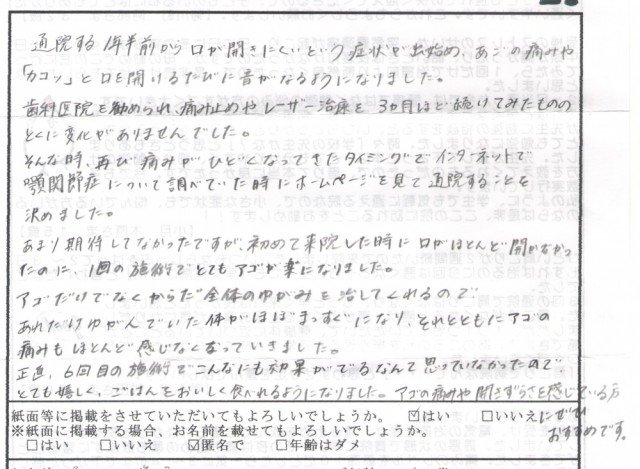 通院する1年半前から口が開きにくいという症状が出始め、あごの痛みや
「カコッ」と口を開けるたびに音がなるようになりました。
歯科医院を勧められ、痛み止めやレーザー治療を3ヵ月ほど続けてみたものの
とくに変化がありませんでした。
そんな時、再び痛みがひどくなってきたタイミングでインターネットで
顎関節症について調べていた時にホームページを見て通院することを
決めました。
あまり期待してなかったですが、初めて来院した時に口がほとんど開かなかっ
たのに、1回の施術でとてもアゴが楽になりました。
アゴだけでなくからだ全体のゆがみを治してくれるので
あれだけゆがんでいた体がほぼまっすぐになり、それとともにアゴの
痛みもほとんど感じなくなっていきました。
正直、6回目の施術でこんなにも効果がでるなんて思っていなかったので
とても嬉しく、ごはんをおいしく食べれるようになりました。アゴの痛みや開きずらさを感じている方
にぜひ
おすすめです。
紙面等に掲載をさせていただいてもよろしいでしょうか。 ☑はい □いいえ
※紙面に掲載する場合、お名前を載せてもよろしいでしょうか。
□はい □いいえ ☑匿名で □年齢はダメ